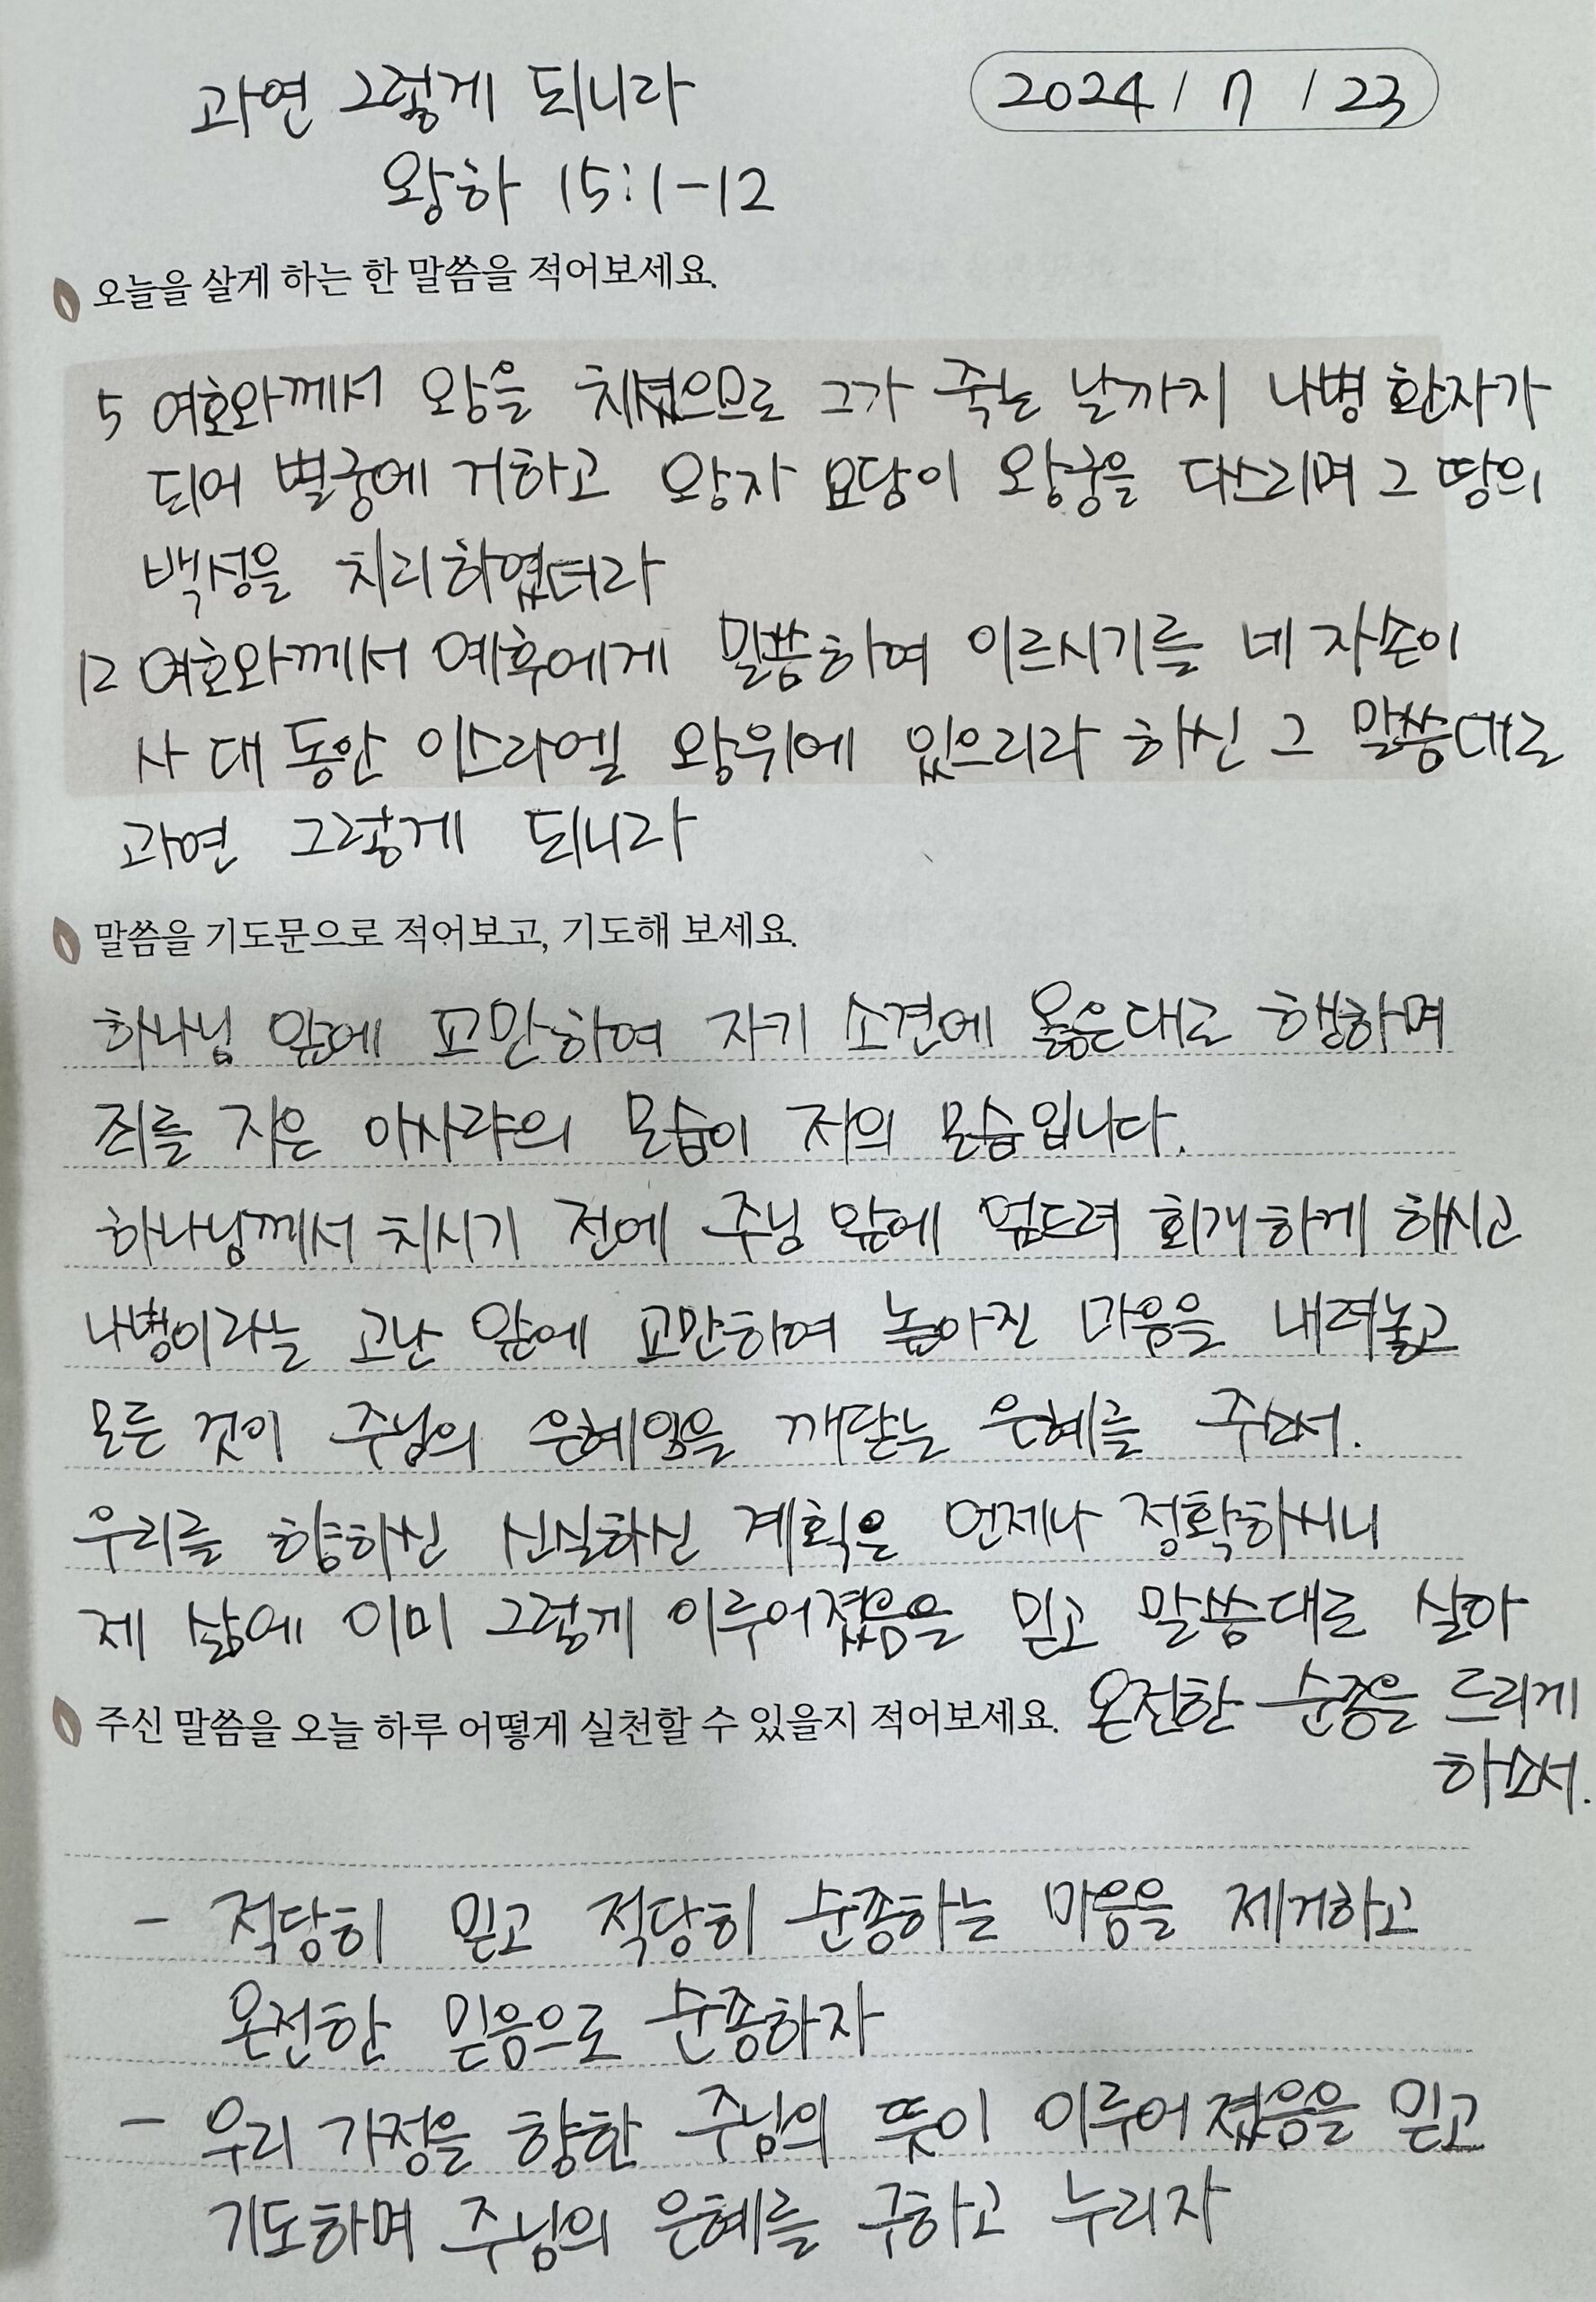 과연 그렇게 되니라
2024 / 7 / 23
왕하 15:1-12
오늘을 살게 하는 한 말씀을 적어보세요.
5 여호와께서 왕을 치셨으므로 그가 죽는 날까지 나병 환자가
되어 별궁에 거하고 왕자 요담이 왕궁을 다스리며 그 땅의
백성을 치리하였더라
12 여호와께서 예후에게 말씀하여 이르시기를 네 자손이
사 대 동안 이스라엘 왕위에 있으리라 하신 그 말씀대로
과연 그렇게 되니라
말씀을 기도문으로 적어보고, 기도해 보세요.
하나님 앞에 교만하여 자기 소견에 옳은대로 행하며
죄를 지은 아사랴의 모습이 저의 모습입니다.
하나님께서 치시기 전에 주님 앞에 엎드려 회개하게 하시고
나병이라는 고난 앞에 교만하여 높아진 마음을 내려놓고
모든 것이 주님의 은혜임을 깨닫는 은혜를 주소서.
우리를 향하신 신실하신 계획은 언제나 정확하시니
제 삶에 이미 그렇게 이루어졌음을 믿고 말씀대로 살아
온전한 순종을 드리게
하소서.
주신 말씀을 오늘 하루 어떻게 실천할 수 있을지 적어보세요.
- 적당히 믿고 적당히 순종하는 마음을 제거하고
온전한 믿음으로 순종하자
- 우리 가정을 향한 주님의 뜻이 이루어졌음을 믿고
기도하며 주님의 은혜를 구하고 누리자